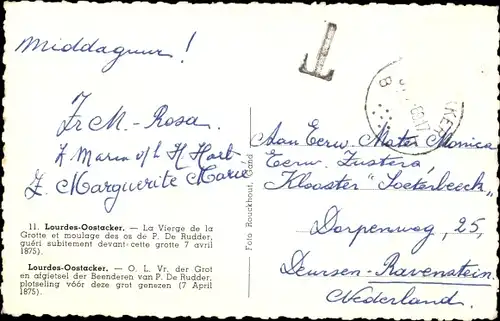 Middaguur!
Zr M. Rosa.
Z Maria v/h H Hart
Z. Marguerite Marie
11. Lourdes-Oostacker. — La Vierge de la
Grotte et moulage des os de P. De Rudder,
guéri subitement devant cette grotte 7 avril
1875).
Lourdes-Oostacker. — O. L. Vr. der Grot
en afgietsel der Beenderen van P. De Rudder,
plotseling vóór deze grot genezen (7 April
1875).
Foto Rouckhout, Gand
T
B
Aan Eerw. Mater Monica
Eerw. Zusters
Klooster "Soeterbeeck"
Dorpenweg, 25,
Deursen-Ravenstein
Nederland.